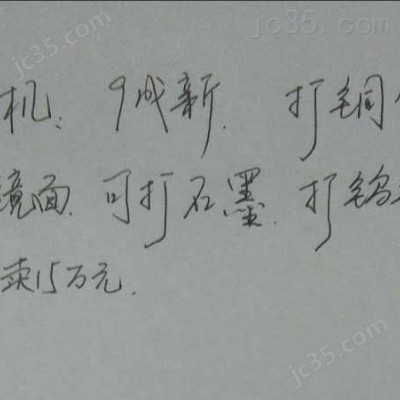 jc35.com
机: 9成新. 打铜
镜面. 可打石墨. 打钨
卖15万元.
jc35.com